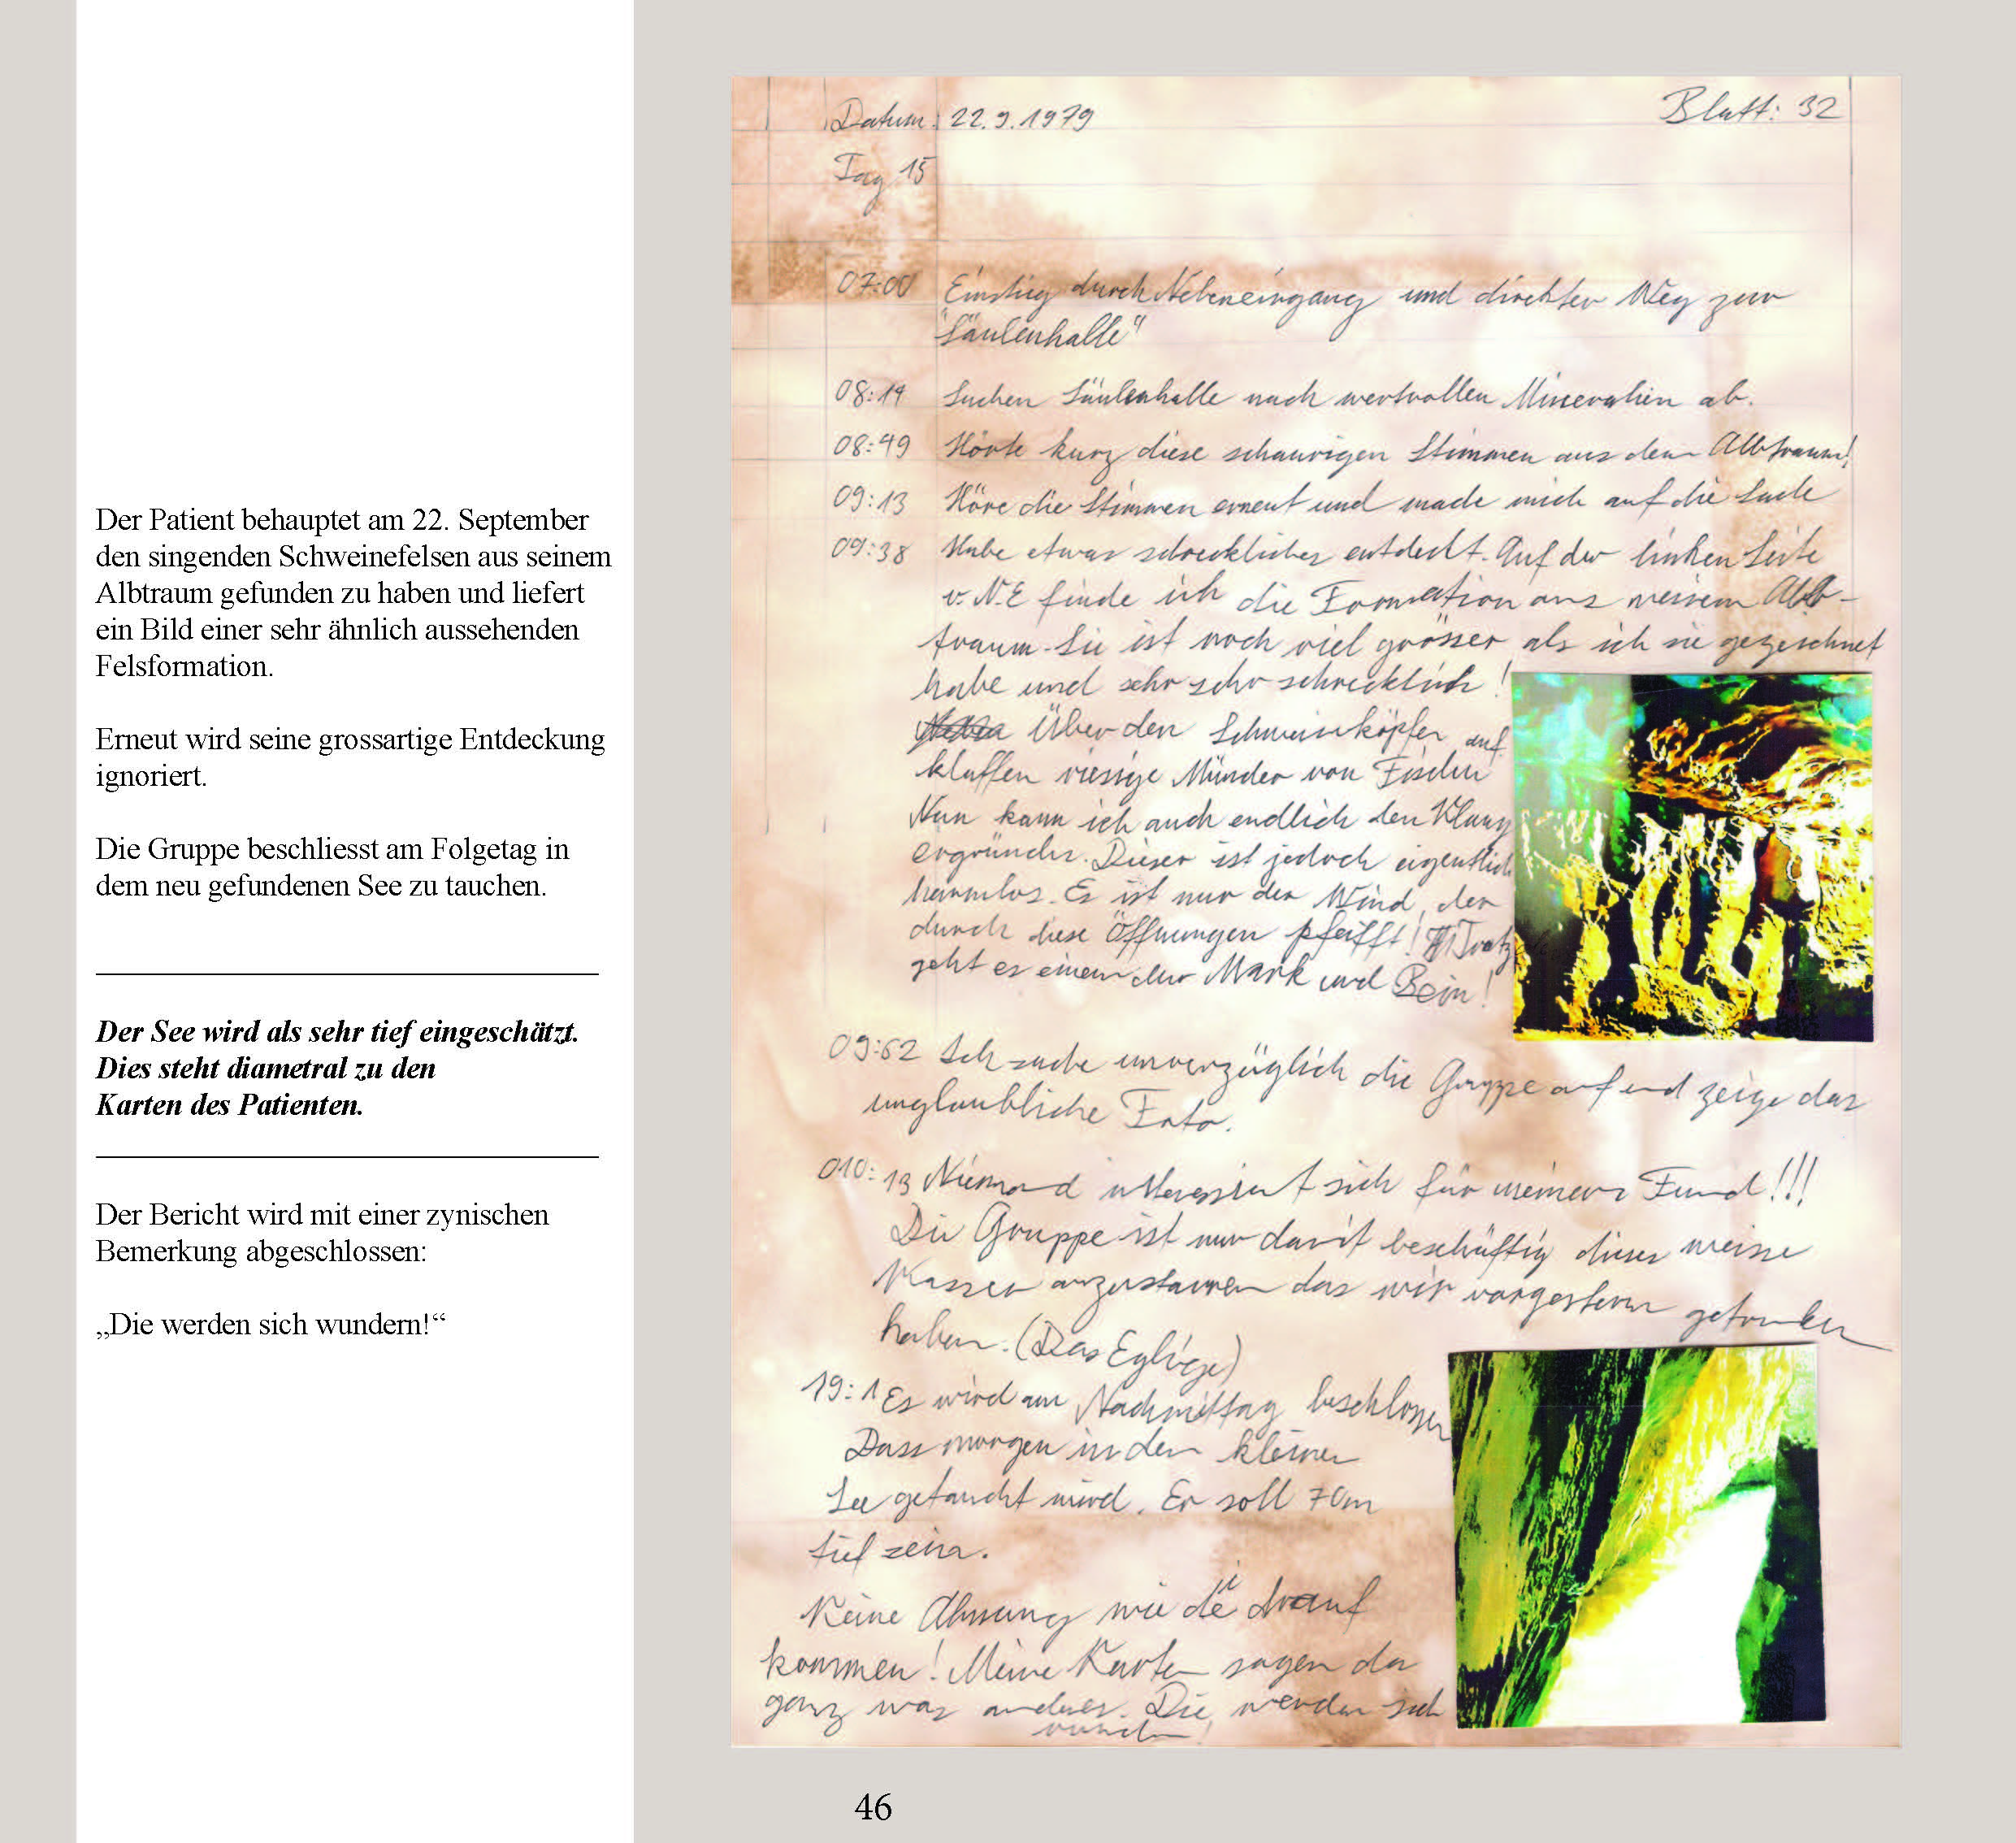 Der Patient behauptet am 22. September
den singenden Schweinefelsen aus seinem
Albtraum gefunden zu haben und liefert
ein Bild einer sehr ähnlich aussehenden
Felsformation.
Erneut wird seine grossartige Entdeckung
ignoriert.
Die Gruppe beschliesst am Folgetag in
dem neu gefundenen See zu tauchen.
Der See wird als sehr tief eingeschätzt.
Dies steht diametral zu den
Karten des Patienten.
Der Bericht wird mit einer zynischen
Bemerkung abgeschlossen:
„Die werden sich wundern!“
Datum: 22.9.1979 Blatt: 32
Tag 15
07:00 Einstieg durch Nebeneingang und direkter Weg zur
"Säulenhalle"
08:19 Suchen Säulenhalle nach wertvollen Mineralien ab.
08:49 Hörte kurz diese schaurigen Stimmen aus dem Albtraum!
09:13 Höre die Stimmen erneut und mache mich auf die Suche
09:38 Habe etwas schreckliches entdeckt. Auf der linken Seite
v. N.E finde ich die Formation aus meinem Alb-
traum. Sie ist noch viel grösser als ich sie gezeichnet
habe und sehr sehr schrecklich!
Über den Schweinköpfen auf
klaffen riesige Münder von Fischen
Nun kann ich auch endlich den Klang
ergründen. Dieser ist jedoch eigentlich
harmlos. Es ist nur der Wind, der
durch diese Öffnungen pfeifft! Trotz
geht es einem dur Mark und Bein!
09:52 Ich suche unverzüglich die Gruppe auf und zeige das
unglaubliche Foto.
010:13 Niemand interessiert sich für meinen Fund!!!
Die Gruppe ist nur damit beschäftig dieses weisse
Wasser anzustarren das wir vorgestern gefunden
haben. (Das Eglige)
19:1 Es wird am Nachmittag beschlossen
Dass morgen in den kleinen
See getaucht wird. Er soll 70m
tief sein.
Keine Ahnung wie die drauf
kommen! Meine Karten sagen da
ganz was anderes. Die werden sich
46